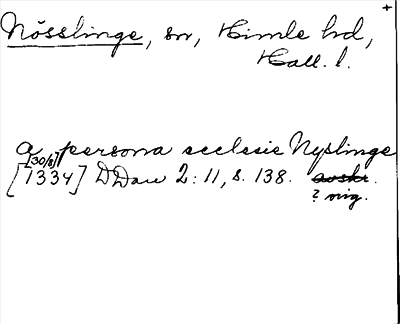 +
Nösslinge, sn, Himle hd,
Hall. l.
a persona ecclesie Nyslinge
[30/8]
[1334] DDan 2:11, s. 138. avskr.
? orig.